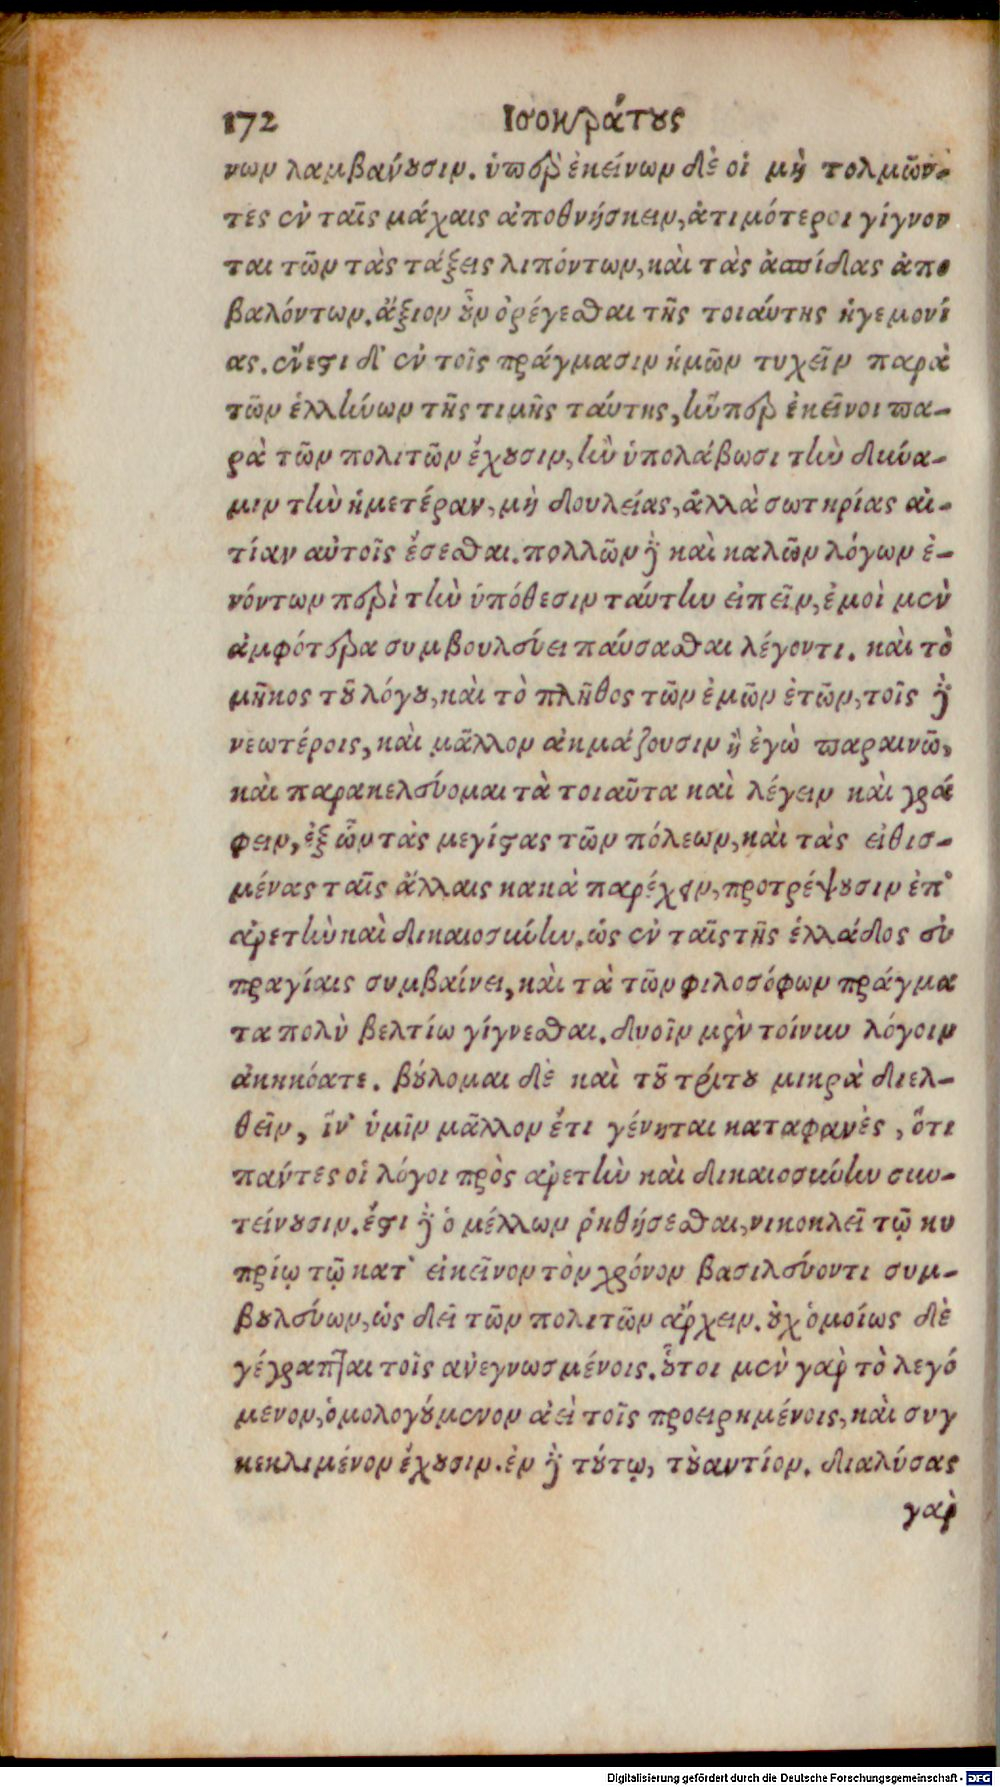 172 Ισοκράτους
νων λαμβάνουσιν. ὑπὲρ ἐκείνων δὲ οἱ μὴ τολμῶν-
τες ἐν ταῖς μάχαις ἀποθνήσκειν, ἀτιμότεροι γίγνον
ται τῶν τὰς τάξεις λιπόντων, καὶ τὰς ἀσπίδας ἀπο
βαλόντων. ἄξιον οὖν ὀρέγεσθαι τῆς τοιαύτης ἡγεμονί
ας. ἔνεστι δ' ἐν τοῖς πράγμασιν ἡμῶν τυχεῖν παρὰ
τῶν ἑλλήνων τῆς τιμῆς ταύτης, ἥνπερ ἐκεῖνοι πα-
ρὰ τῶν πολιτῶν ἔχουσιν, ἢν ὑπολάβωσι τὴν δύνα-
μιν τὴν ἡμετέραν, μὴ δουλείας, ἀλλὰ σωτηρίας αἰ-
τίαν αὐτοῖς ἔσεσθαι. πολλῶν δὲ καὶ καλῶν λόγων ἐ-
νόντων περὶ τὴν ὑπόθεσιν ταύτην εἰπεῖν, ἐμοὶ μὲν
ἀμφότερα συμβουλεύει παύσασθαι λέγοντι. καὶ τὸ
μῆκος τοῦ λόγου, καὶ τὸ πλῆθος τῶν ἐμῶν ἐτῶν, τοῖς δὲ
νεωτέροις, καὶ μᾶλλον ἀκμάζουσιν ἢ ἐγὼ παραινῶ,
καὶ παρακελεύομαι τὰ τοιαῦτα καὶ λέγειν καὶ γρά
φειν, ἐξ ὧν τὰς μεγίστας τῶν πόλεων, καὶ τὰς εἰθισ-
μένας ταῖς ἄλλαις κακὰ παρέχειν, προτρέψουσιν ἐπ'
ἀρετὴν καὶ δικαιοσύνην. ὡς ἐν ταῖς τῆς ἑλλάδος εὐ
πραγίαις συμβαίνει, καὶ τὰ τῶν φιλοσόφων πράγμα
τα πολὺ βελτίω γίγνεσθαι. δυοῖν μὲν τοίνυν λόγοιν
ἀκηκόατε. βούλομαι δὲ καὶ τοῦ τρίτου μικρὰ διελ-
θεῖν, ἵν' ὑμῖν μᾶλλον ἔτι γένηται καταφανὲς, ὅτι
πάντες οἱ λόγοι πρὸς ἀρετὴν καὶ δικαιοσύνην συν-
τείνουσιν. ἔστι δὲ ὁ μέλλων ῥηθήσεσθαι, νικοκλεῖ τῷ κυ
πρίῳ τῷ κατ' ἐκεῖνον τὸν χρόνον βασιλεύοντι συμ-
βουλεύων, ὡς δεῖ τῶν πολιτῶν ἄρχειν. οὐχ ὁμοίως δὲ
γέγραπται τοῖς ἀνεγνωσμένοις. οὗτοι μὲν γὰρ τὸ λεγό
μενον, ὁμολογούμενον ἀεὶ τοῖς προειρημένοις, καὶ συγ
κεκλιμένον ἔχουσιν. ἐν δὲ τούτῳ, τοὐαντίον. διαλύσας
γὰρ
Digitalisierung gefördert durch die Deutsche Forschungsgemeinschaft - DFG